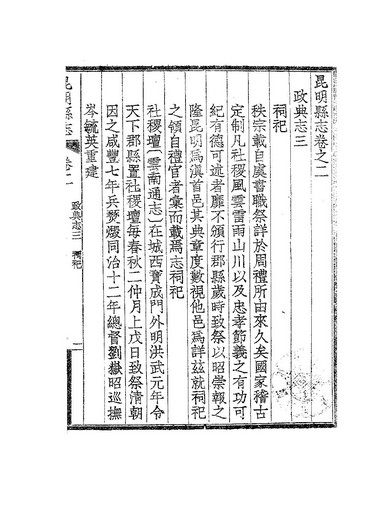 昆明縣志卷之二
政典志三
祠祀
秩宗載自虞書職祭詳於周禮所由來久矣國家稽古
定制凡社稷風雲雷雨山川以及忠孝節義之有功可
紀有德可述者靡不頒行郡縣歲時致祭以昭崇報之
隆昆明爲滇首邑其典章度數視他邑爲詳茲就祠祀
之領自禮官者彙而載焉志祠祀
社稷壇(雲南通志)在城西寶成門外明洪武元年令
天下郡縣置社稷壇每春秋二仲月上戊日致祭清朝
因之咸豐七年兵燹燬同治十二年總督劉嶽昭巡撫
岑毓英重建
昆明縣志 卷二 政典志三 祠祀 一